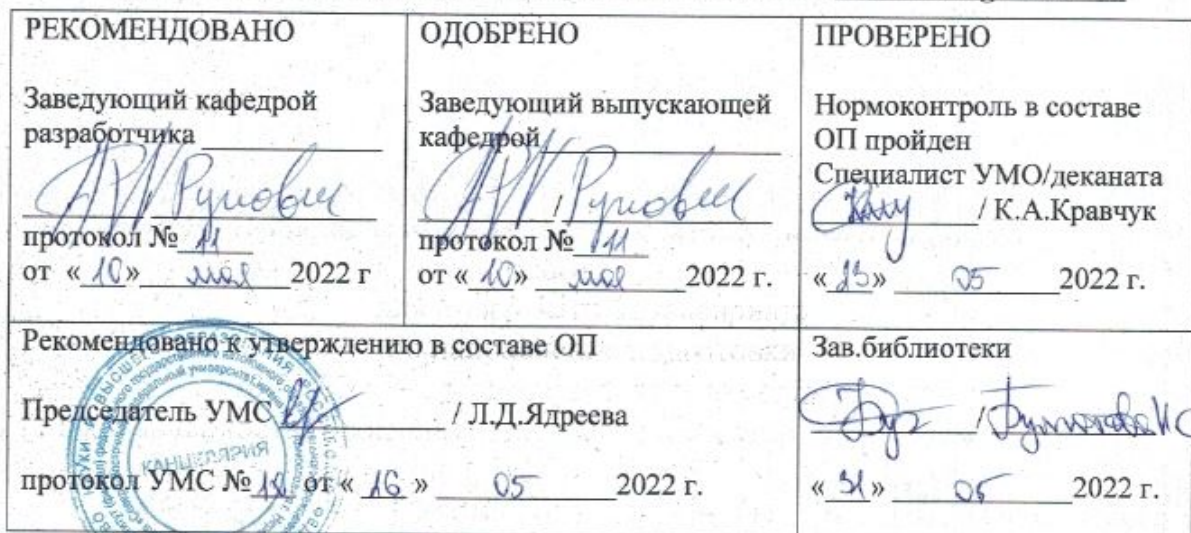 РЕКОМЕНДОВАНО
Заведующий кафедрой
разработчика
/ Рукович
протокол № 11
от «10» мая 2022 г
ОДОБРЕНО
Заведующий выпускающей
кафедрой
/ Рукович
протокол № 11
от «10» мая 2022 г.
ПРОВЕРЕНО
Нормоконтроль в составе
ОП пройден
Специалист УМО/деканата
/ К.А.Кравчук
«13» 05 2022 г.
Рекомендовано к утверждению в составе ОП
Председатель УМС / Л.Д.Ядреева
протокол УМС № от «16» 05 2022 г.
КАНЦЕЛЯРИЯ
Зав.библиотеки
/
«31» 05 2022 г.